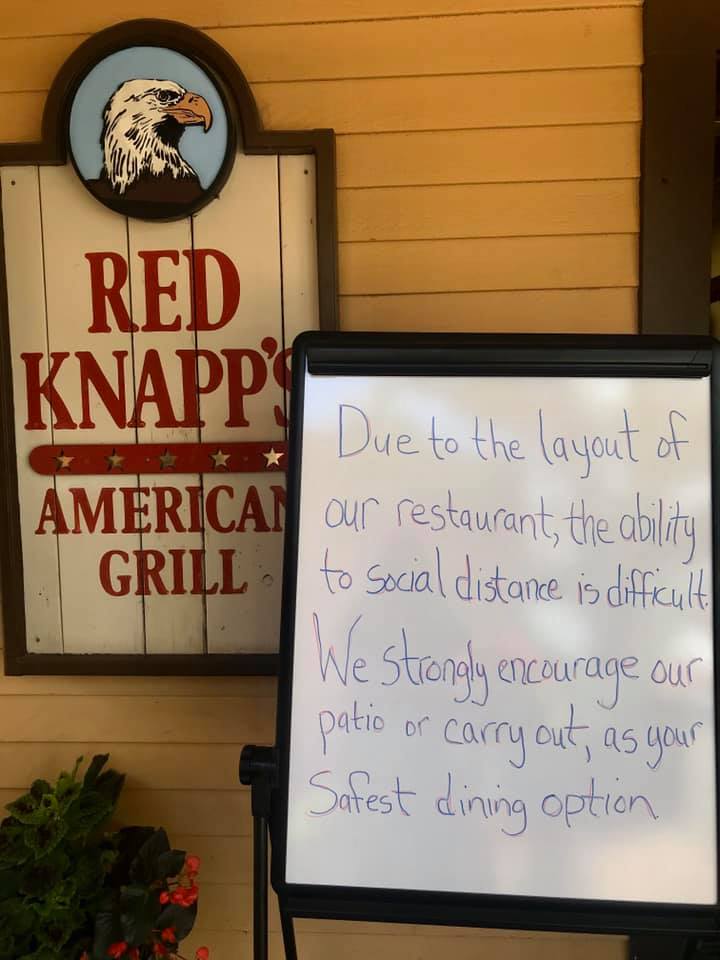 RED
KNAPP'S
AMERICAN
GRILL
Due to the layout of
our restaurant, the ability
to social distance is difficult.
We strongly encourage our
patio or carry out, as your
Safest dining option.